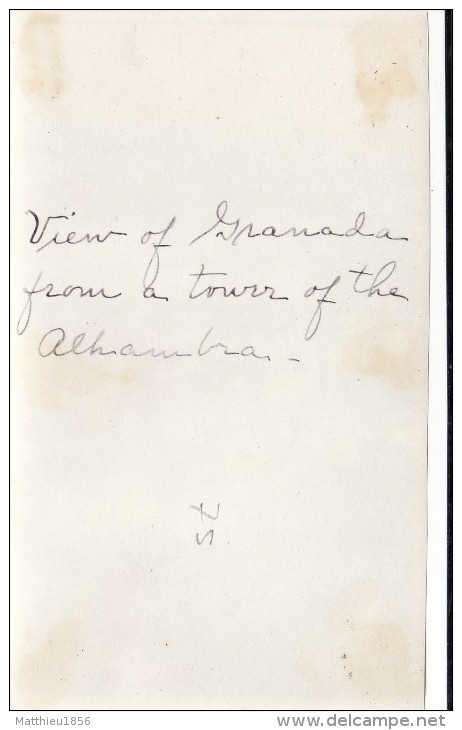 View of Granada
from a tower of the
Alhambra. -
Matthieu1856
delcampe.net